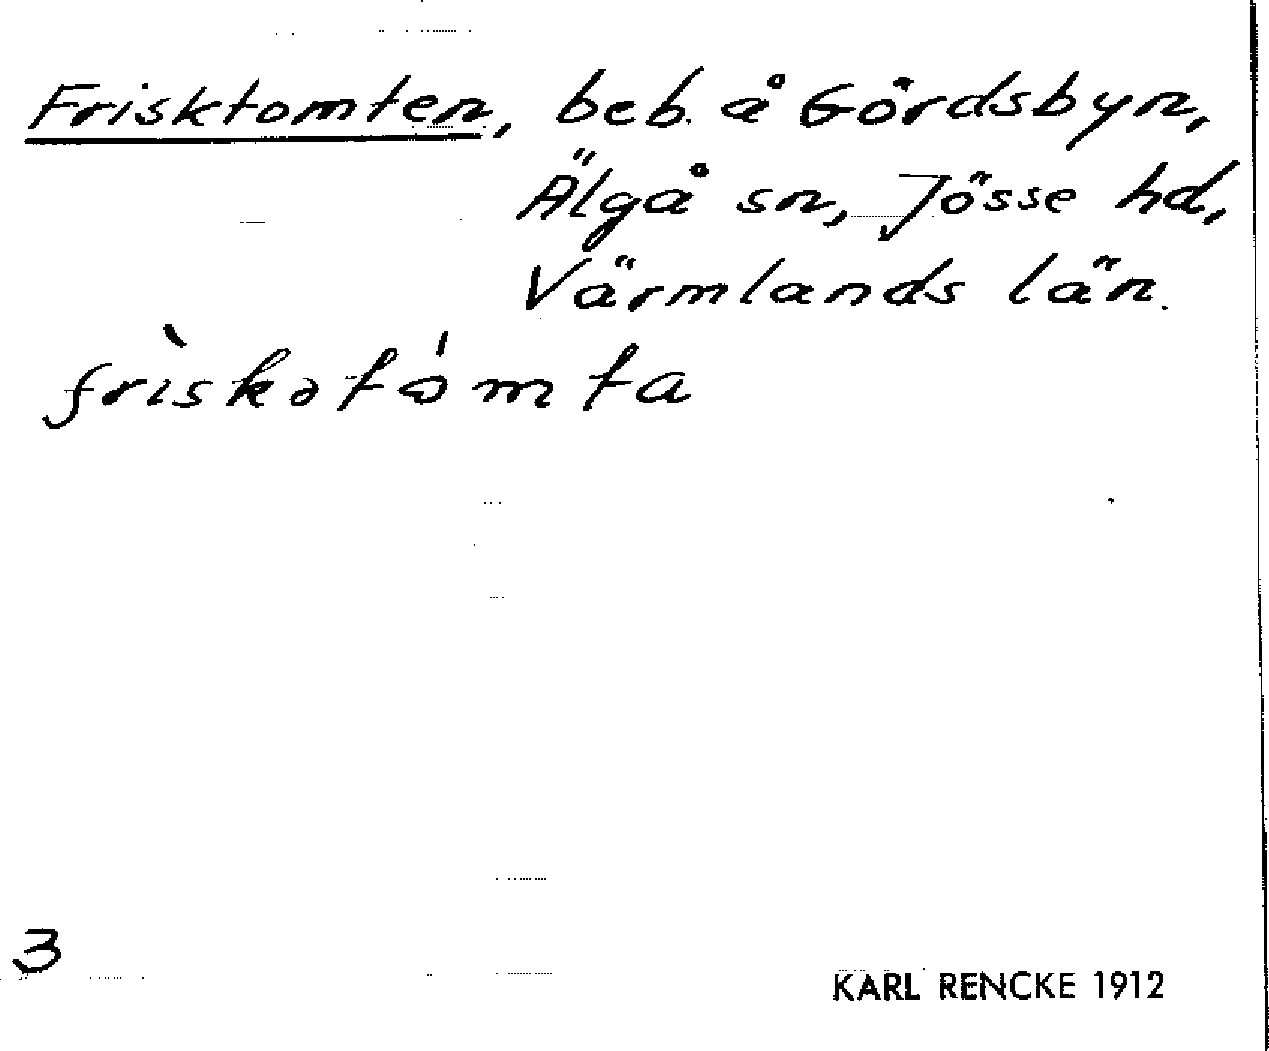 Frisktomten, beb. å Gördsbyn,
Älgå sn, Jösse hd,
Värmlands län.
frìskətómta
3
KARL RENCKE 1912